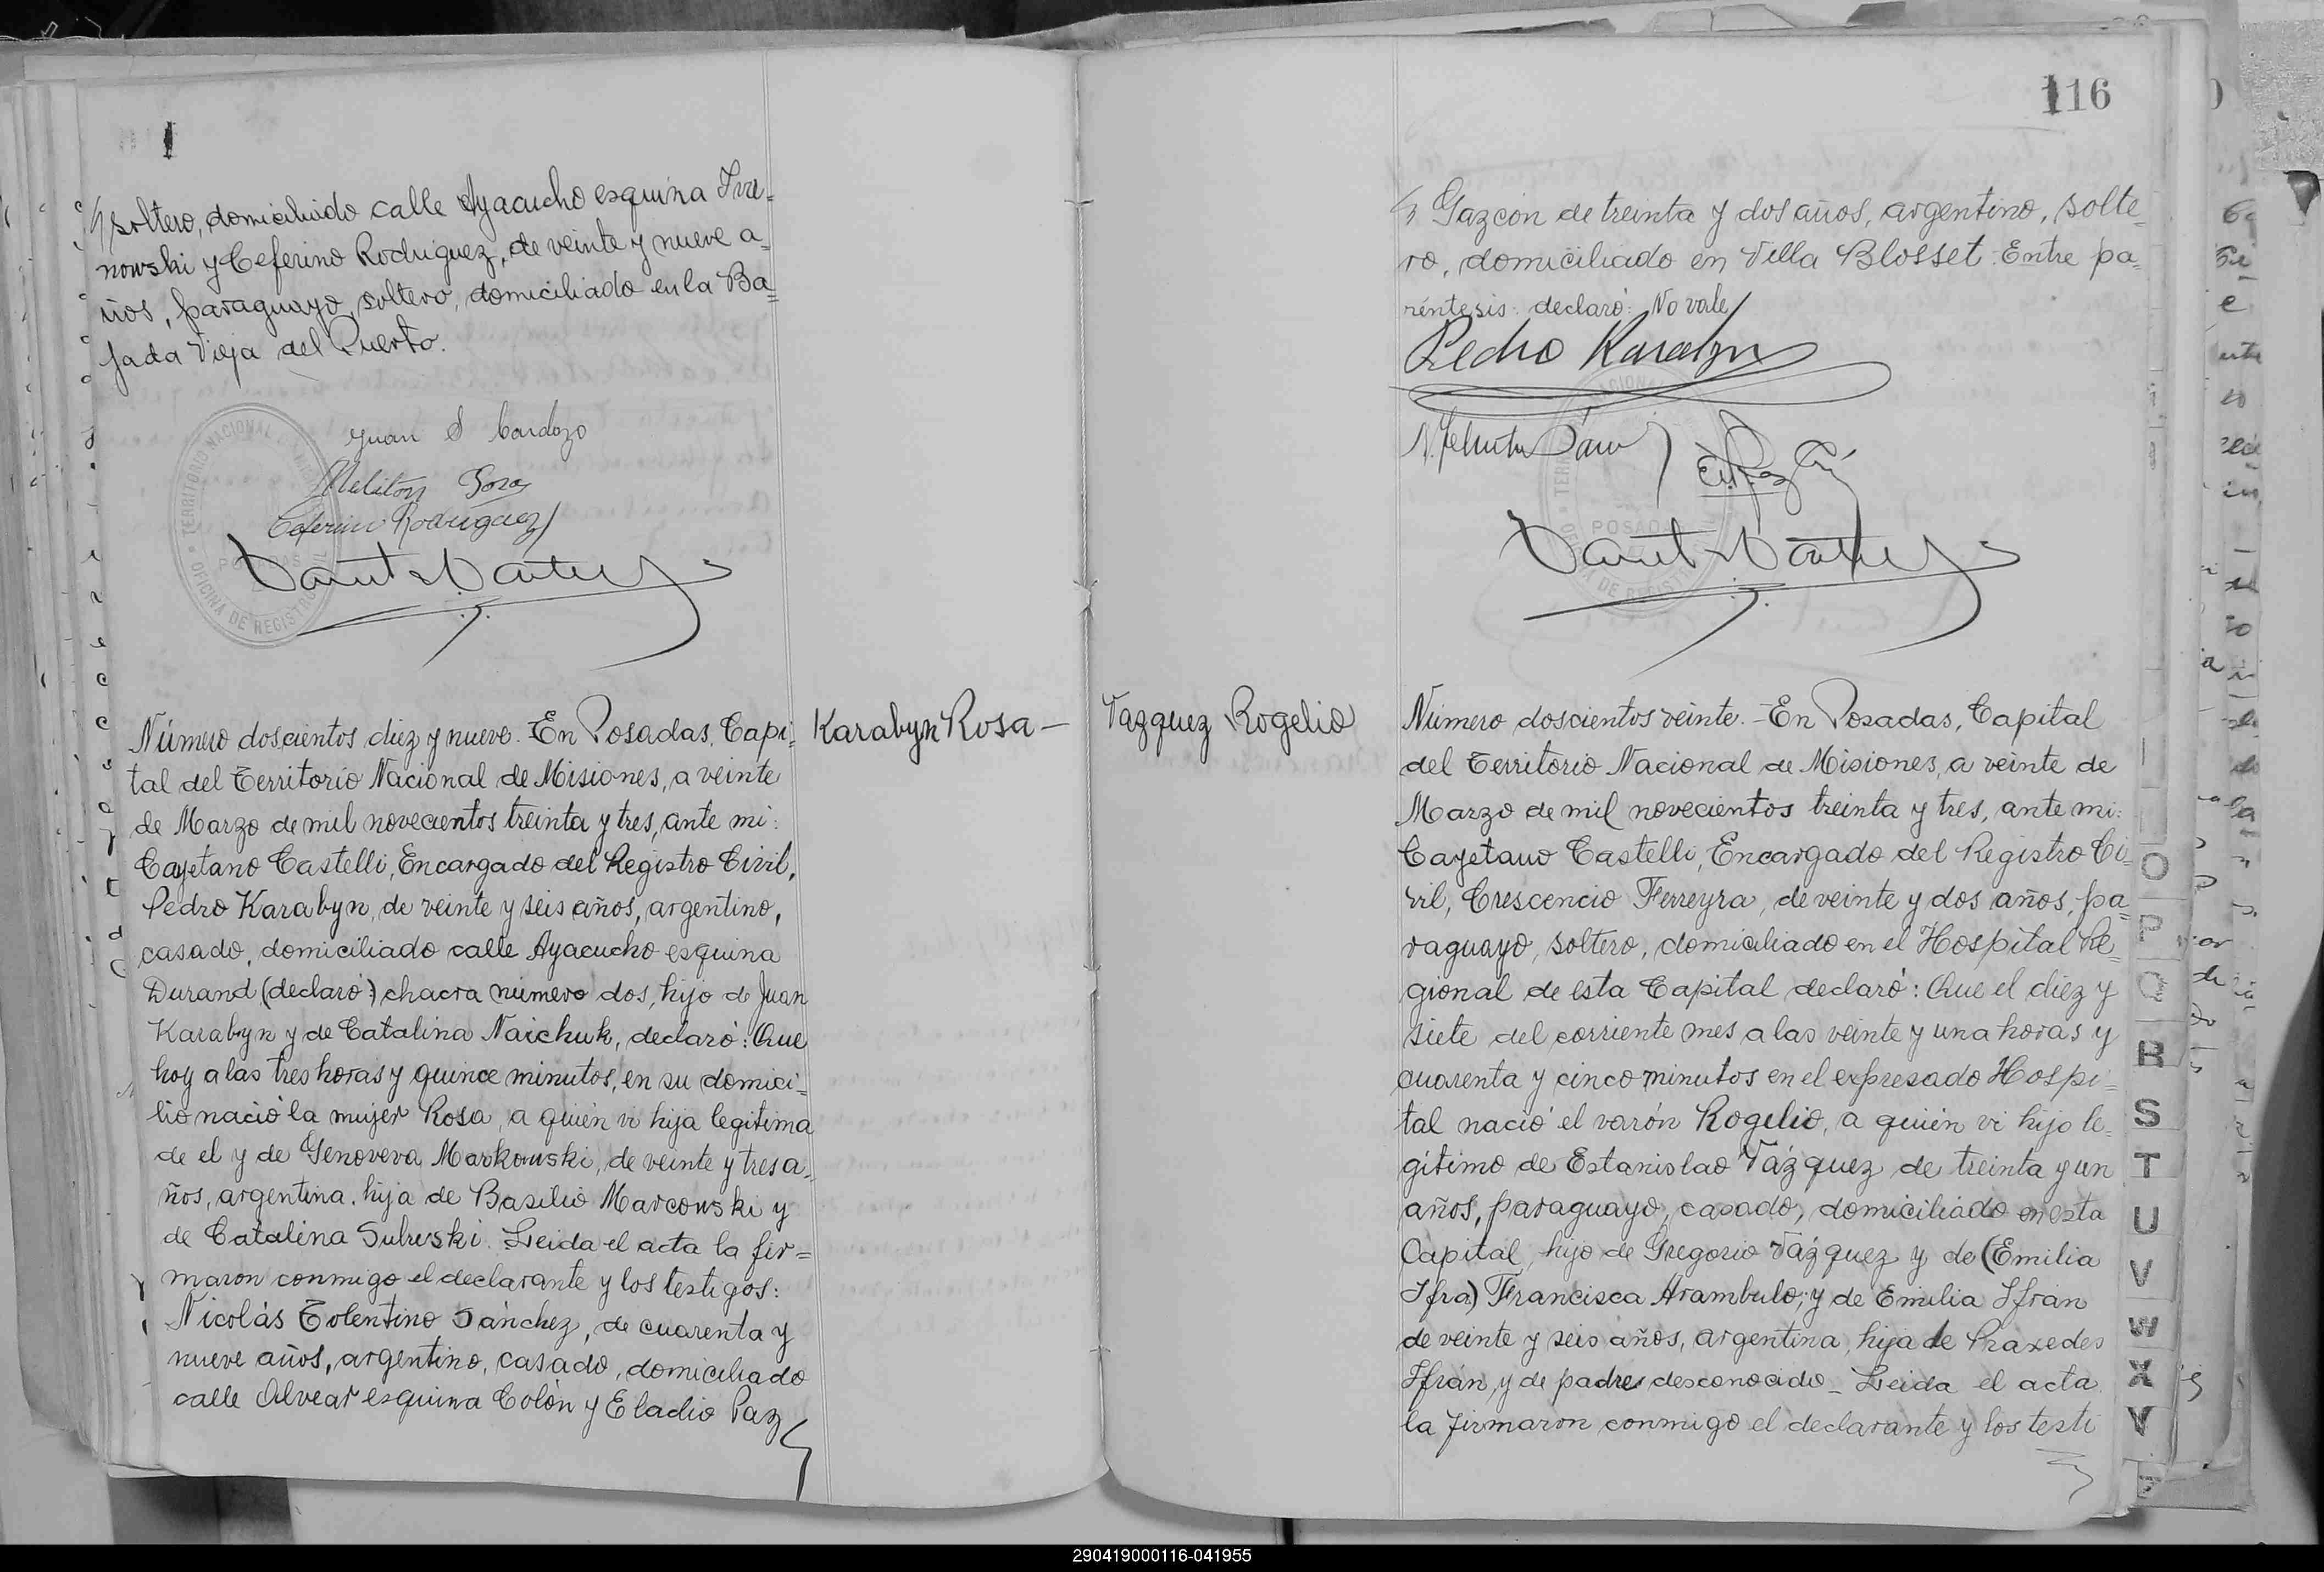 soltero, domiciliado calle Ayacucho esquina Iva-
nowski y Ceferino Rodriguez, de veinte y nueve a=
ños, paraguayo, soltero, domiciliado en la Ba=
jada Vieja del Puerto.
Juan S Cardozo
Meliton
Ceferino Rodriguez
TERRITORIO NACIONAL
OFICINA DE REGISTRO CIVIL
POSADAS
Número doscientos diez y nueve. En Posadas, Capi=
tal del Territorio Nacional de Misiones, a veinte
de Marzo de mil novecientos treinta y tres, ante mi:
Cayetano Castelli, Encargado del Registro Civil,
Pedro Karabyn, de veinte y seis años, argentino,
casado, domiciliado calle Ayacucho esquina
Durand (declaró:) chacra número dos, hijo de Juan
Karabyn y de Catalina Naichuk, declaró: Que
hoy a las tres horas y quince minutos, en su domici=
lio nació la mujer Rosa, a quién vi hija legitima
de el y de Genoveva Markowski, de veinte y tres a=
ños, argentina, hija de Basilio Marcowski y
de Catalina Leida el acta la fir=
maron conmigo el declarante y los testigos:
Nicolás Tolentino Sánchez, de cuarenta y
nueve años, argentino, casado, domiciliado
calle Alvear esquina Colón y Eladio Paz
Karabyn Rosa -
116
Gazcón de treinta y dos años, argentino, solte=
ro, domiciliado en Villa Blosset. Entre pa=
réntesis: declaró: No vale
Pedro Karabyn
POSADAS
Vazquez Rogelio
Número doscientos veinte. - En Posadas, Capital
del Territorio Nacional de Misiones, a veinte de
Marzo de mil novecientos treinta y tres, ante mi:
Cayetano Castelli, Encargado del Registro Ci=
vil, Crescencio Ferreyra, de veinte y dos años, pa=
raguayo, soltero, domiciliado en el Hospital Re=
gional de esta Capital declaró: Que el diez y
siete del corriente mes a las veinte y una horas y
cuarenta y cinco minutos en el expresado Hospi=
tal nació el varón Rogelio, a quién vi hijo le=
gitimo de Estanislao Vázquez de treinta y un
años, paraguayo, casado, domiciliado en esta
Capital, hijo de Gregorio Vázquez y de (Emilia
Ifra) Francisca Arambulo; y de Emilia Ifrán
de veinte y seis años, argentina, hija de Praxedes
Ifrán, y de padre desconocido - Leida el acta
la firmaron conmigo el declarante y los testi
O
P
Q
R
S
T
U
V
W
X
Y
Z
290419000116-041955